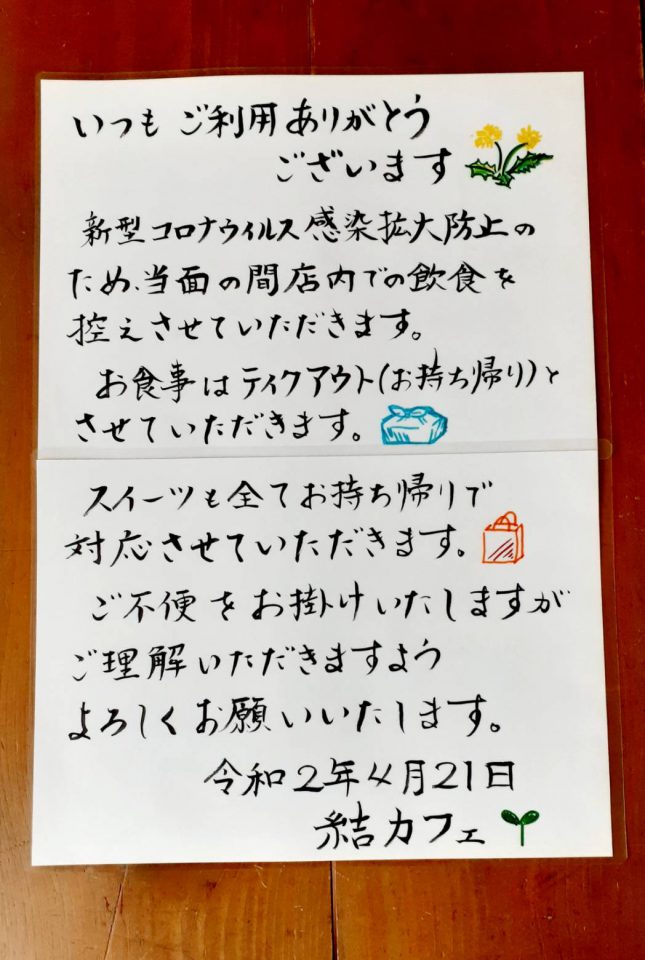 いつも ご利用ありがとう
ございます
新型コロナウイルス感染拡大防止の
ため、当面の間店内での飲食を
控えさせていただきます。
お食事はテイクアウト(お持ち帰り)と
させていただきます。
スイーツも全てお持ち帰りで
対応させていただきます。
ご不便をお掛けいたしますが
ご理解いただきますよう
よろしくお願いいたします。
令和2年4月21日
結カフェ